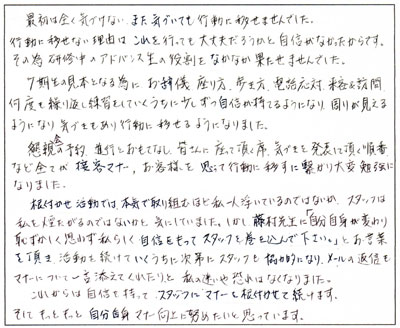 最初は全く気づけない、また気づいても行動に移せませんでした。
行動に移せない理由はこれを行っても大丈夫だろうかと自信がなかったからです。
その為研修中のアドバンス生の役割をなかなか果たせませんでした。
7期生の見本となる為にお辞儀、座り方、歩き方、電話応対、来客と訪問、
何度も繰り返し練習をしていくうちに少しずつ自信が持てるようになり、周りが見える
ようになり気づきもあり行動に移せるようになりました。
懇親会の予約、進行とおもてなし、皆さんに座って頂く席、気づきを発表して頂く順番
など全てが接客マナー、お客様を思って行動に移すに繋がり大変勉強に
なりました。
根付かせ活動では本気で取り組むほど私一人浮いているのではないか、スタッフは
私を煙たがるのではないかと気にしていました。しかし藤村先生に「自分自身が変わり
恥ずかしく思わず私らしく自信をもってスタッフを巻き込んで下さい。」とお言葉
を頂き活動を続けていくうちに次第にスタッフも協力的になり、メールの返信を
マナーについて一言添えてくれたりと私の迷いや恐れはなくなりました。
これからは自信を持って、スタッフにマナーを根付かせて続けます。
そしてもっともっと自分自身マナー向上に努めたいと思っています。